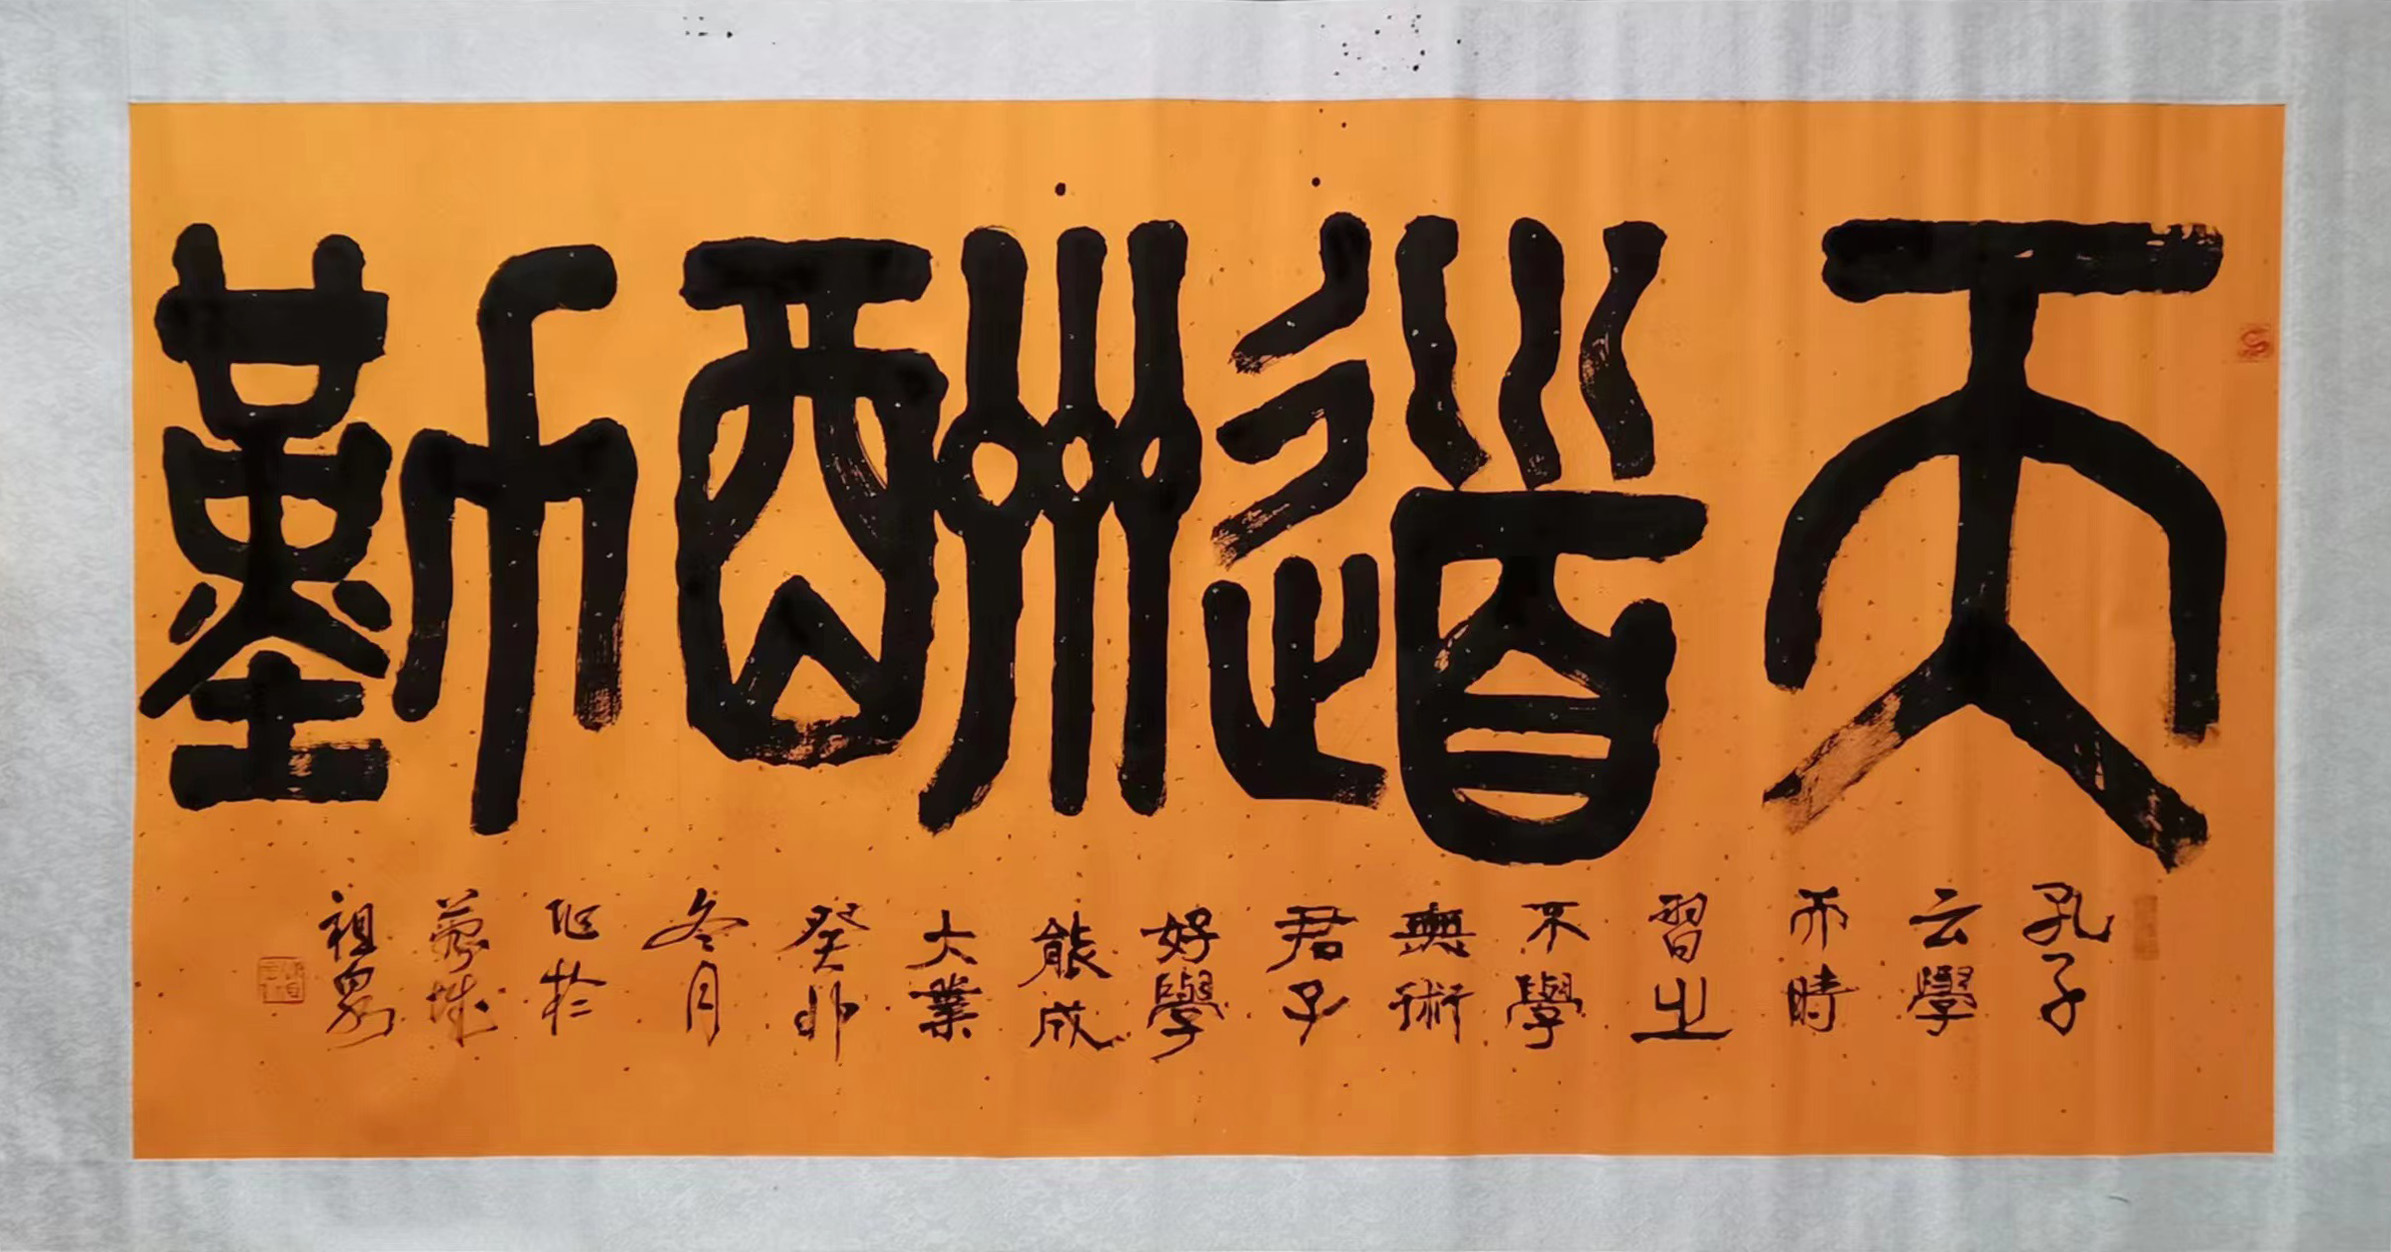 天道酬勤
孔子
云學
而時
習之
不學
無術
君子
好學
能成
大業
癸卯
冬月
作於
城
祖泉